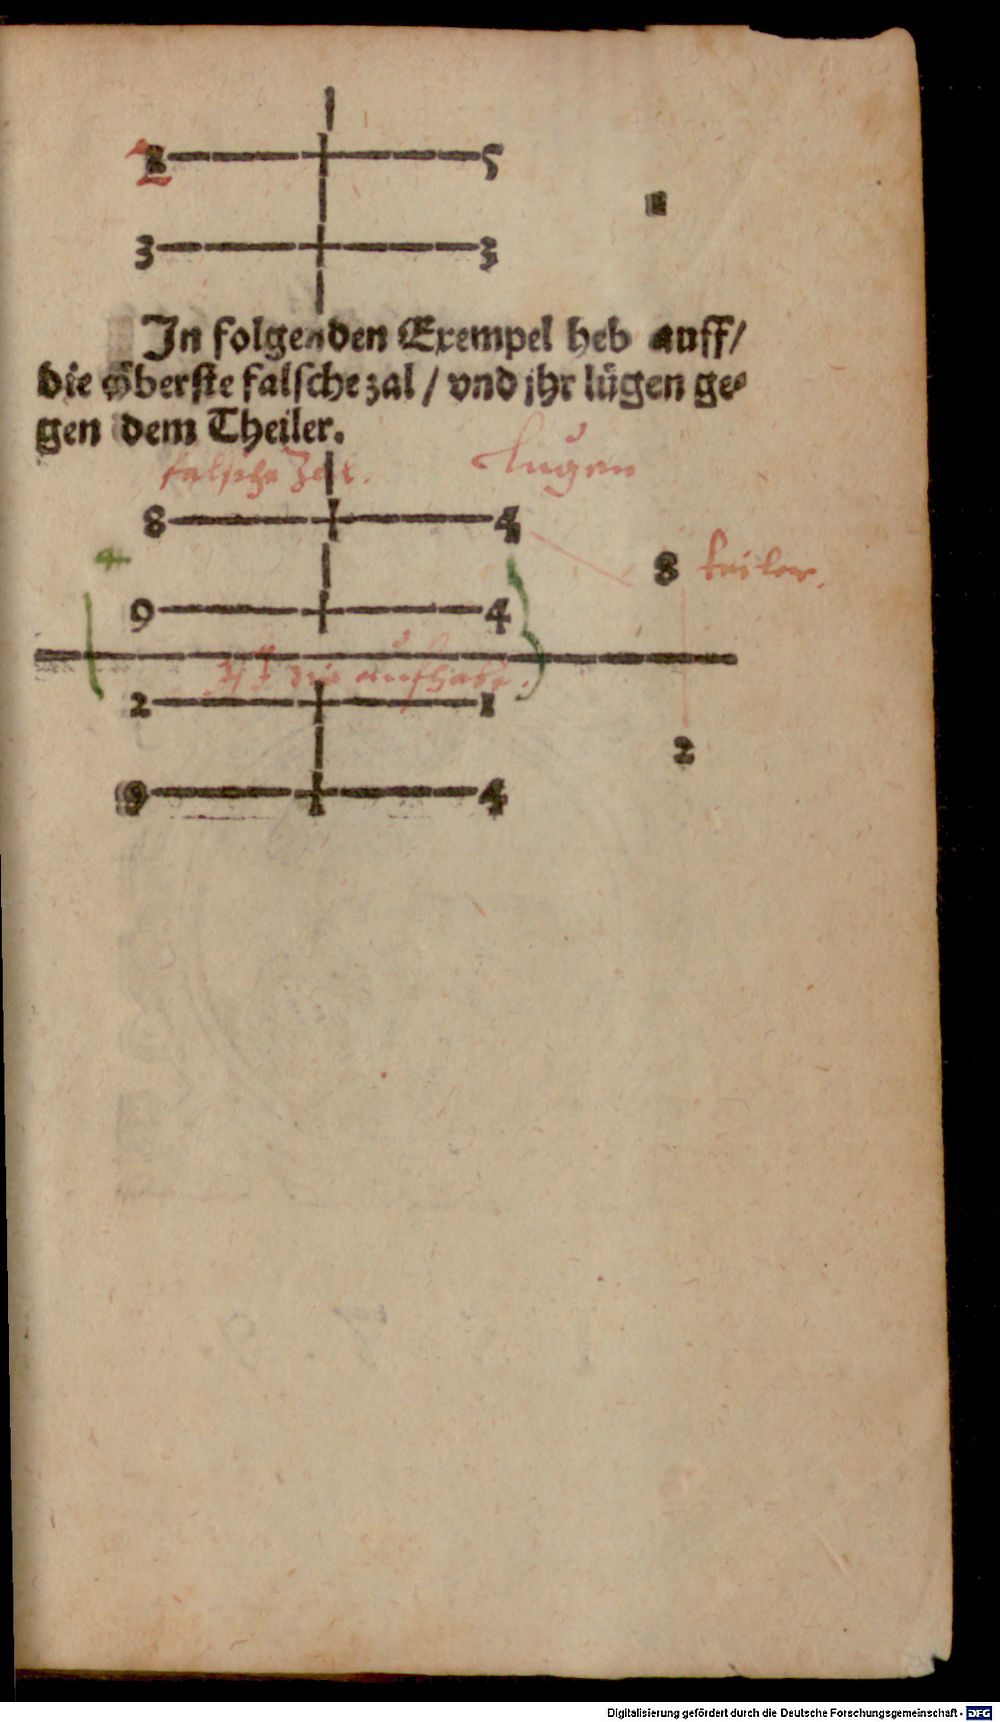 5
1
3 3
In folgenden Exempel heb auff/
die öberste falsche zal / vnd jhr lügen ge⸗
gen dem Theiler.
falsche Zal. Lugen
8 4
4 8 teiler.
9 4
die aufhabe.
2 1
2
9 4
Digitalisierung gefördert durch die Deutsche Forschungsgemeinschaft - DFG